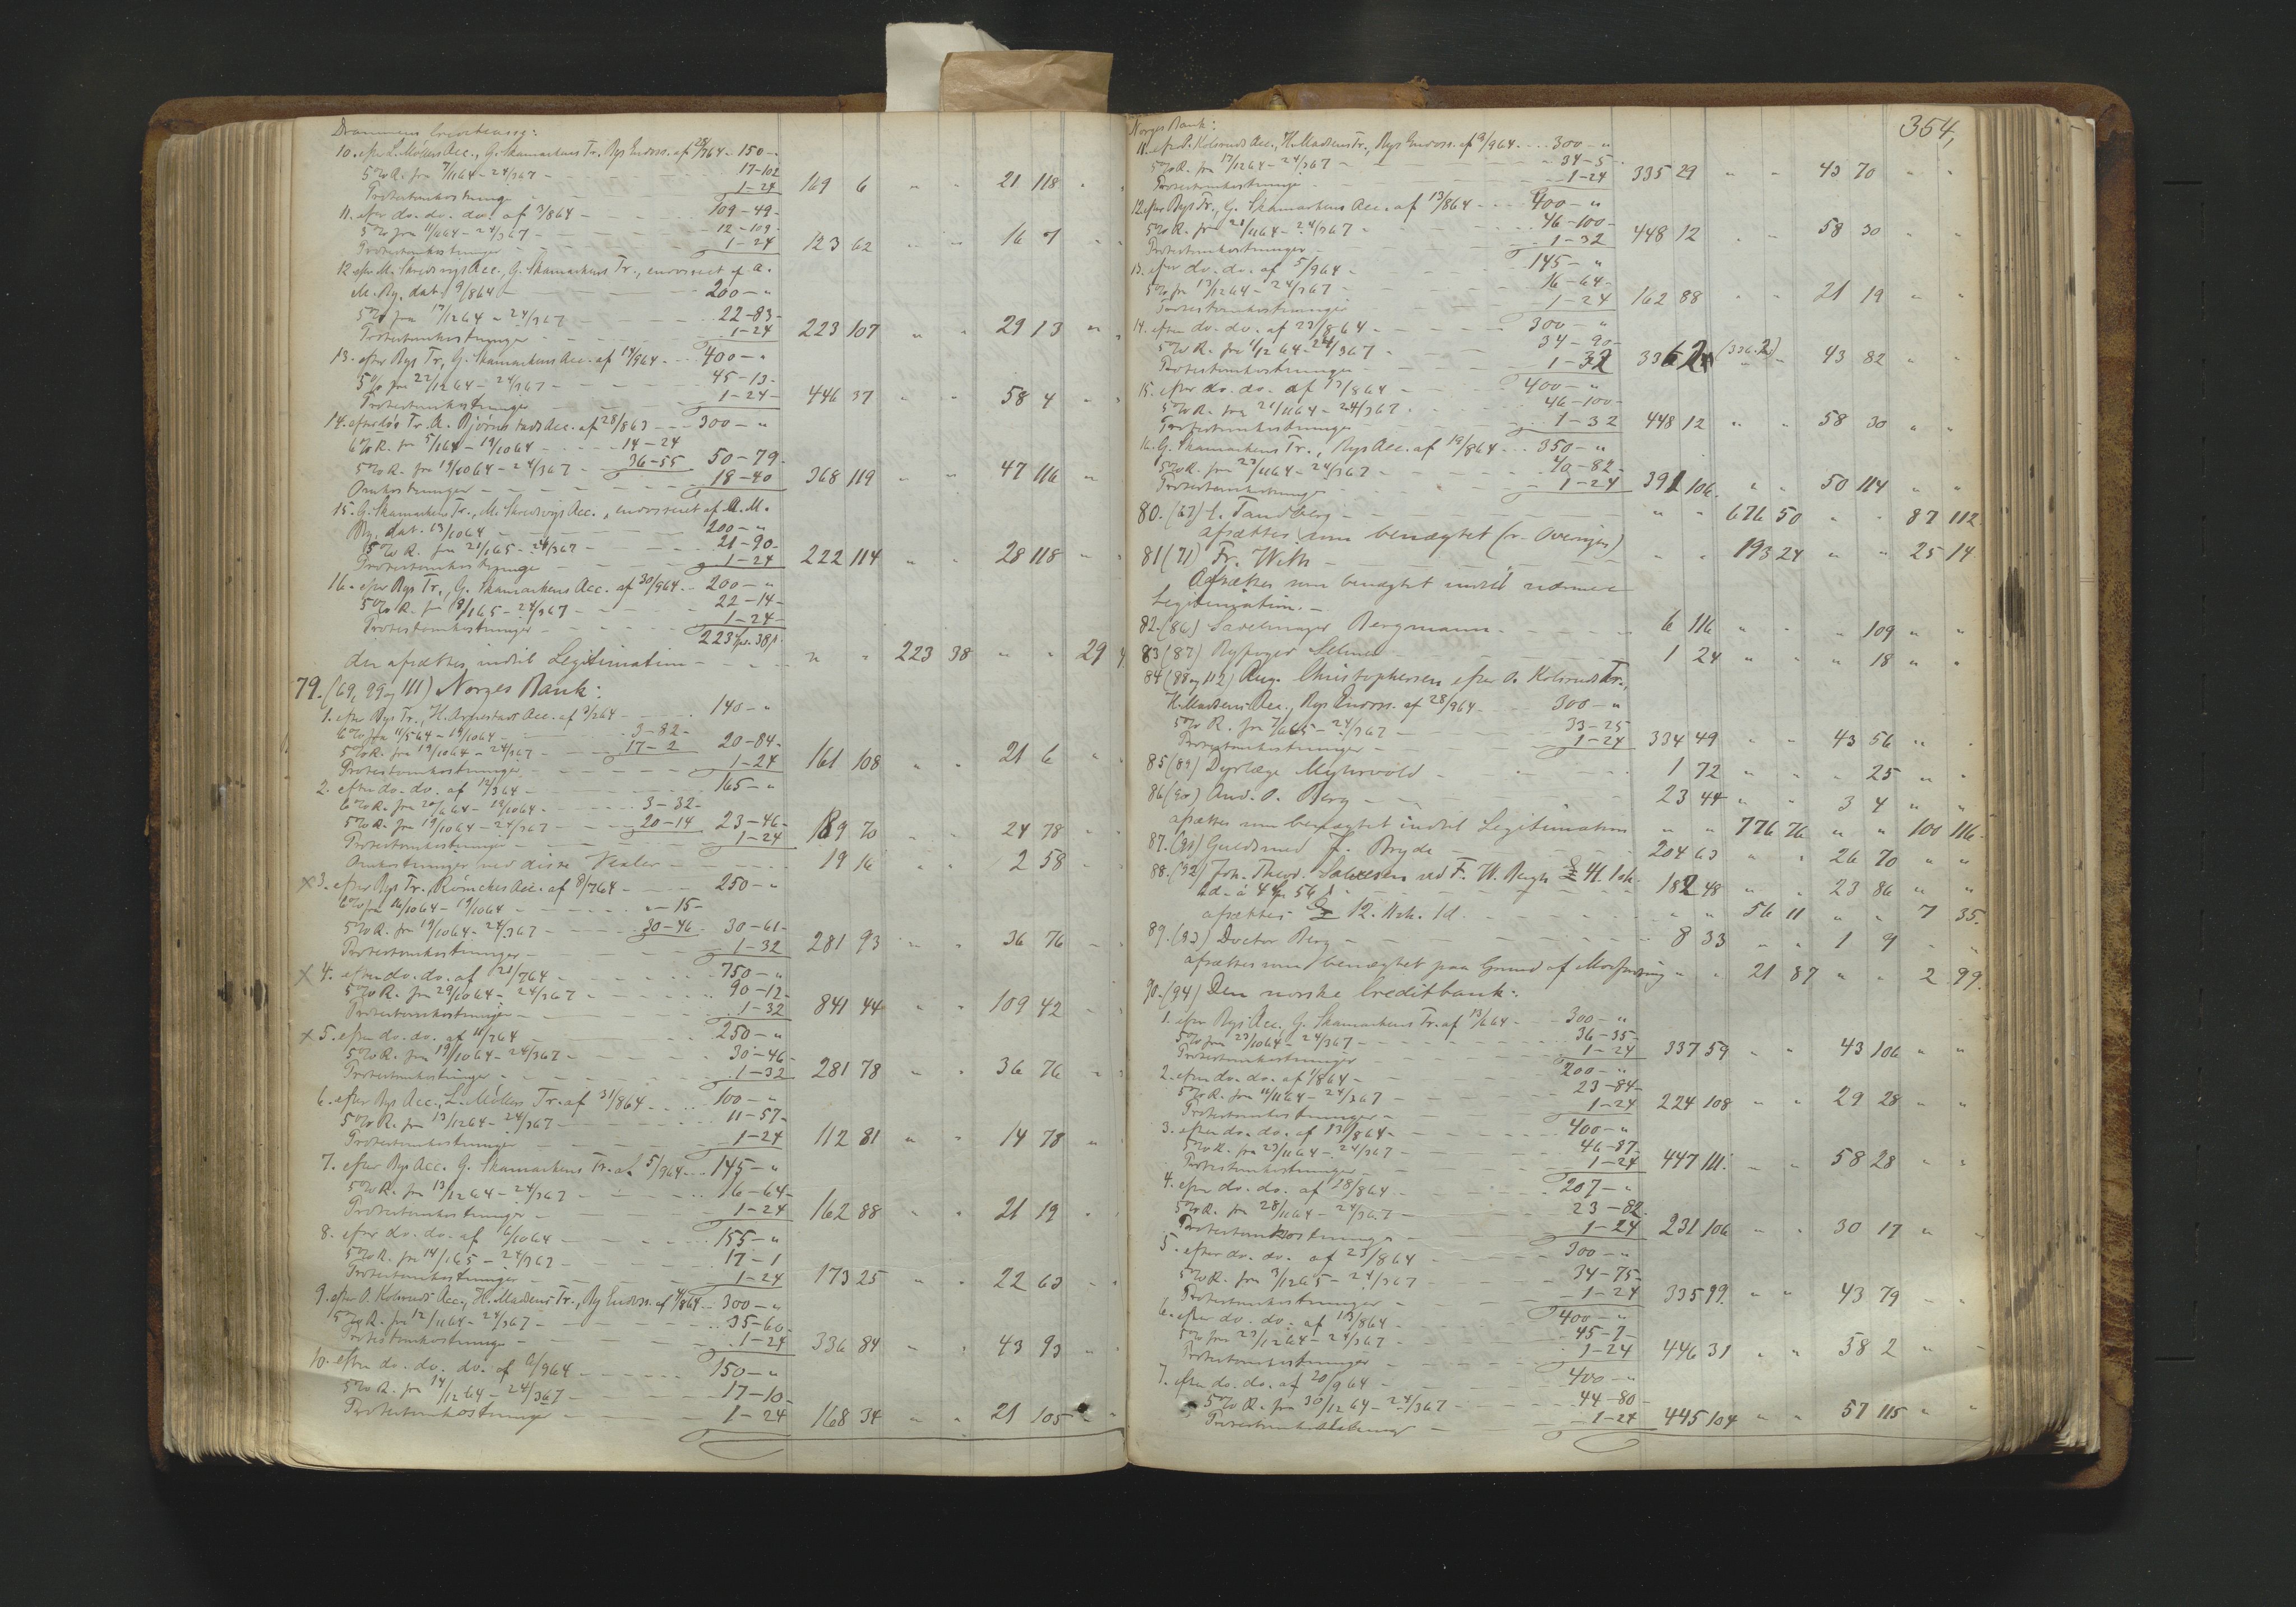 Drammens Creditcasse:
10. efter L. Møllers Acc., G. Skamarkens Tr. Rys Endoss. af 28/764 - 150 - "
5% R. fra 7/1164 - 24/367 - 17-102
Protestomkostninger - 1-24 169 6 " " 21 118 " "
11. efter do. do. do. af 3/864 - 109-49-
5% fra 11/1164 - 24/367 - 12-109-
Protestomkostninger - 1-24 123 62 " " 16 7 " "
12. efter M. Skredsvigs Acc., G. Skamarkens Tr., endosseret af A.
M. Ry, dat. 9/864 - 200 - "
5% fra 17/1264 - 24/367 - 22-83-
Protestomkostninger - 1-24 223 107 " " 29 13 " "
13. efter Rys Tr., G. Skamarkens Acc. af 14/964 - 400 - "
5% fra 22/1264 - 24/367 - 45-13-
Protestomkostninger - 1-24- 446 37 " " 58 4 " "
14. efter do's Tr. A. Bjørnstads Acc. af 28/863 - 300 - "
6% R. fra 5/164 - 19/1064 - 14-24
5% R. fra 19/1064 - 24/367 - 36-55 50-79-
Omkostninger - 18-40 368 119 " " 47 116 "
15. G. Skamarkens Tr., M. Skredsvigs Acc., endosseret af A. M.
Ry, dat. 13/1064 - 200 - "
5% R. fra 21/165 - 24/367 - 21-90-
Protestomkostninger - 1-24 222 114 " " 28 118 " "
16. efter Rys Tr., G. Skamarkens Acc. af 30/964 - 200 - "
5% R. fra 8/165 - 24/367 - 22-14-
Protestomkostninger - 1-24-
223 Spd. 38 s
der afsættes indtil Legitimation - " " 223 38 " " 29 9
79. (69, 99 og 111) Norges Bank:
1. efter Rys Tr., H. Arnestads Acc. af 3/264 - 140 - "
6% fra 11/564 - 19/1064 - 3-82-
5% R. fra 19/1064 - 24/367 - 17-2 20-84-
Protestomkostninger - 1-24 161 108 " " 21 6 "
2. efter do. do. af 12/364 - 165 - "
6% R. fra 20/664 - 19/1064 - 3-32-
5% R. fra 19/1064 - 24/367 - 20-14 23-46-
Protestomkostninger - 1-24 189 70 " " 24 78 " "
Omkostninger ved disse Vexler - 19 16 " " 2 58 "
x 3. efter Rys Tr., Rømckes Acc. af 8/764 - 250 - "
6% fra 16/1064 - 19/1064 - " - 15 -
5% R. fra 19/1064 - 24/367 - 30-46- 30-61-
Protestomkostninger - 1-32 281 93 " " 36 76 " "
x 4. efter do. do. af 21/764 - 750 - "
5% R. fra 29/1064 - 24/367 - 90-12-
Protestomkostninger - 1-32 841 44 " " 109 42 " "
x 5. efter do. do. af 11/764 - 250 - "
5% R. fra 19/1064 - 24/367 - 30-46-
Protestomkostninger - 1-32 281 78 " " 36 76 " "
6. efter Rys Acc., L. Møllers Tr. af 31/864 - 100 - "
5% R. fra 13/1264 - 24/367 - 11-57-
Protestomkostninger - 1-24 112 81 " " 14 78 "
7. efter Rys Acc. G. Skamarkens Tr. af 5/964 - 145 - "
5% R. fra 13/1264 - 24/367 - 16-64-
Protestomkostninger - 1-24 162 88 " " 21 19 "
8. efter do. do. af 6/1064 - 155 - "
5% R. fra 14/165 - 24/367 - 17-1
Protestomkostninger - 1-24 173 25 " " 22 63 " "
9. efter O. Kolsruds Acc., H. Madsens Tr., Ry Endoss. af 4/864 - 300 - "
5% R. fra 12/1164 - 24/367 - 35-60-
Protestomkostninger - 1-24 336 84 " " 43 93 " "
10. efter do. do. do. af 2/964 - 150 - "
5% R. fra 14/1264 - 24/367 - 17-10-
Protestomkostninger - 1-24 168 34 " " 21 105 " "
354,
Norges Bank:
11. efter O. Kolsruds Acc., H. Madsens Tr., Rys Endoss. af 9/964 - 300 - "
5% R. fra 17/1264 - 24/367 - 34-5-
Protestomkostninger - 1-24 335 29 " " 43 70 " "
12. efter Rys Tr., G. Skamarkens Acc. af 13/864 - 400 - "
5% R. fra 21/1164 - 24/367 - 46-100-
Protestomkostninger - 1-32 448 12 " " 58 30 " "
13. efter do. do. af 5/964 - 145 - "
5% fra 13/1264 - 24/367 - 16-64-
Protestomkostninger - 1-24 162 88 " " 21 19 " "
14. efter do. do. af 23/864 - 300 - "
5% R. fra 1/1264 - 24/367 - 34-90-
Protestomkostninger - 1-32 336 2 (336.2) " - 43 82 " "
15. efter do. do. af 13/864 - 400 - "
5% R. fra 21/1164 - 24/367 - 46-100-
Protestomkostninger - 1-32 448 12 " " 58 30 " "
16. G. Skamarkens Tr., Rys Acc. af 19/864 - 350 - "
5% R. fra 23/1164 - 24/367 - 40-82-
Protestomkostninger - 1-24 391 106. " " 50 114 " "
80. (67) E. Tandberg - " " 676 50 " " 87 112
afsættes som benægtet
81 (71) Fr. With - " " 193 24 " " 25 14
Afsættes som benægtet indtil nærmere
Legitimation. -
82. (86) Sadelmager Bergmann - 6 116 " " " 109 " "
83 (87) Byfoged Selmer - 1 24 " " " 18 " "
84 (88 og 112) Aug. Christophersen efter O. Kolsruds Tr.,
H. Madsens Acc., Rys Endoss. af 28/964 - 300 - "
5% R. fra 7/165 - 24/367 - 33-25
Protestomkostninger - 1-24 334 49 " " 43 56 " "
85 (89) Dyrlæge Myhrvold - 1 72 " " " 25 " "
86 (90) And. O. Berg - 23 44 " " 3 4 " "
afsættes som benægtet indtil Legitimation " " 776 76 " " 100 116-
87. (91) Guldsmed J. Bryde - 204 63 " " 26 70 " "
88. (92) Joh. Theod. Salvesen ved F. W. Bergh £ 41. 1 sh.
1 d. à 4 56 s - 182 48 " " 23 86 " "
afsættes £ 12. 11 sh. 1 d. - " " 56 11 " " 7 35.
89. (93) Doctor Berg - 8 33 " " 1 9 " "
afsættes som benægtet paa Grund af Modfordring " " 21 87 " " 2 99.
90. (94) Den norske Creditbank:
1. efter Rys Acc. G. Skamarkens Tr. af 13/664 - 300 - "
5% fra 23/1064 - 24/367 - 36-35-
Protestomkostninger - 1-24 337 59 " " 43 106 " "
2. efter do. do. af 1/864 - 200 - "
5% R. fra 11/1164 - 24/367 - 23-84-
Protestomkostninger - 1-24 224 108 " " 29 28 " "
3. efter do. do. af 13/864 - 400 - "
5% R. fra 23/1164 - 24/367 - 46-87-
Protestomkostninger - 1-24 447 111. " " 58 28 " "
4. efter do. do. af 18/864 - 207 - "
5% R. fra 28/1164 - 24/367 - 23-82.
Protestomkostninger - 1-24 231 106 " " 30 17 " "
5. efter do. do. af 23/864 - 300 - "
5% R. fra 3/1265 - 24/367 - 34-75-
Protestomkostninger - 1-24 335 99. " " 43 79 " "
6. efter do. do. af 13/864 - 400 - "
5% fra 23/1264 - 24/367 - 45-7-
Protestomkostninger - 1-24 446 31 " " 58 2 " "
7. efter do. do. af 20/964 - 400 - "
5% R. fra 30/1264 - 24/367 - 44-80-
Protestomkostninger - 1-24 445 104 " " 57 115 " "